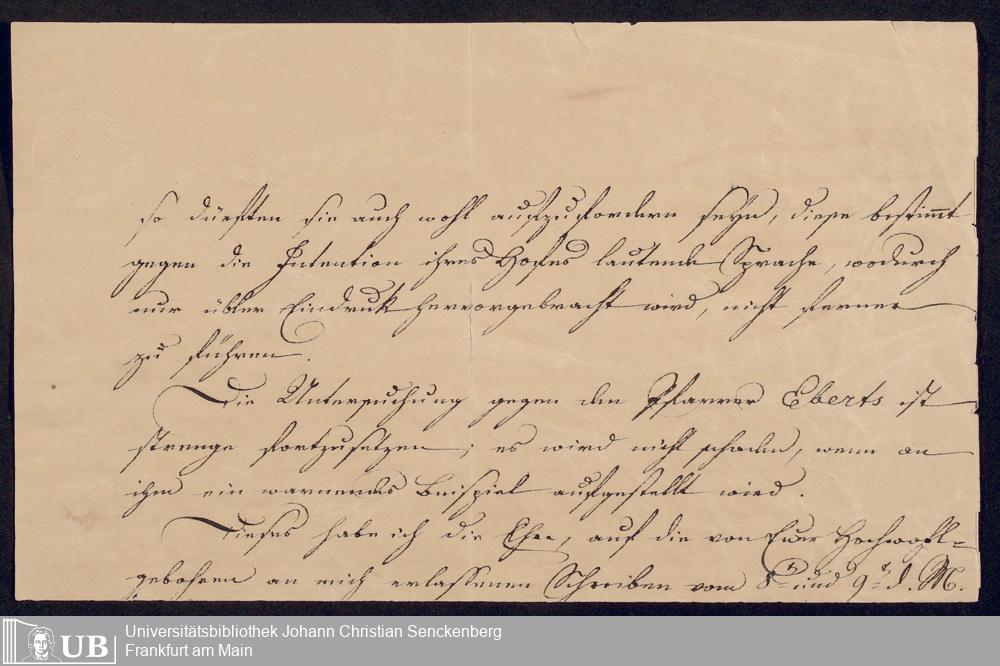 so dürften sie auch wohl aufzufordern seyn, diese bestimt
gegen die Intention ihres Hofes lautende Sprache, wodurch
nur übler Eindruk hervorgebracht wird, nicht ferner
zu führen.
Die Untersuchung gegen den Pfarrer Eberts ist
strenge fortzusetzen; es wird nicht schaden, wenn an
ihm ein warnendes Beispiel aufgestellt wird.
Dieses habe ich die Ehre, auf die von Euer Hochwohl=
gebohren an mich erlassenen Schreiben vom 8ⁿ und 9ⁿ d. M.
UB
Universitätsbibliothek Johann Christian Senckenberg
Frankfurt am Main